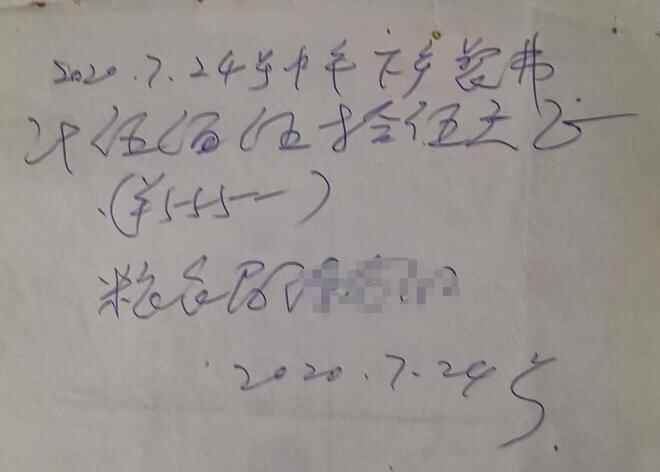 2020.7.24号中车下乡装弗
计伍佰伍拾伍元正
(¥555—)
粮仓
2020.7.24号